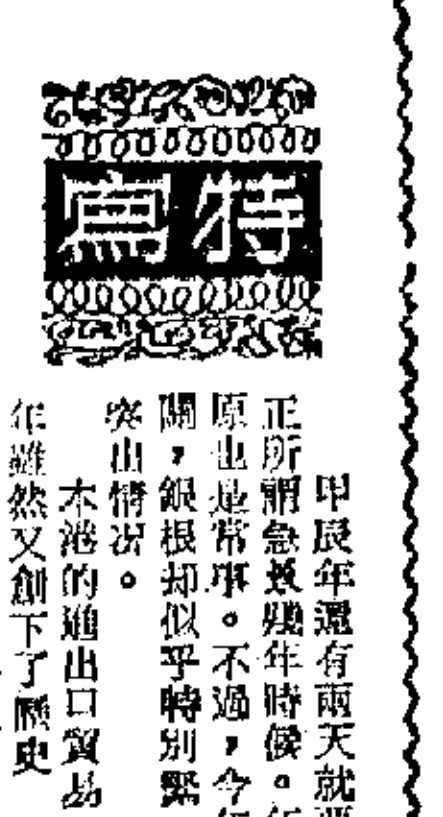 特寫
甲辰年還有兩天就
正所謂急景殘年時候。
原也是常事。不過,今年
關,銀根却似乎特別緊
突出情况。
本港的進出口貿易
年雖然又創下了歷史